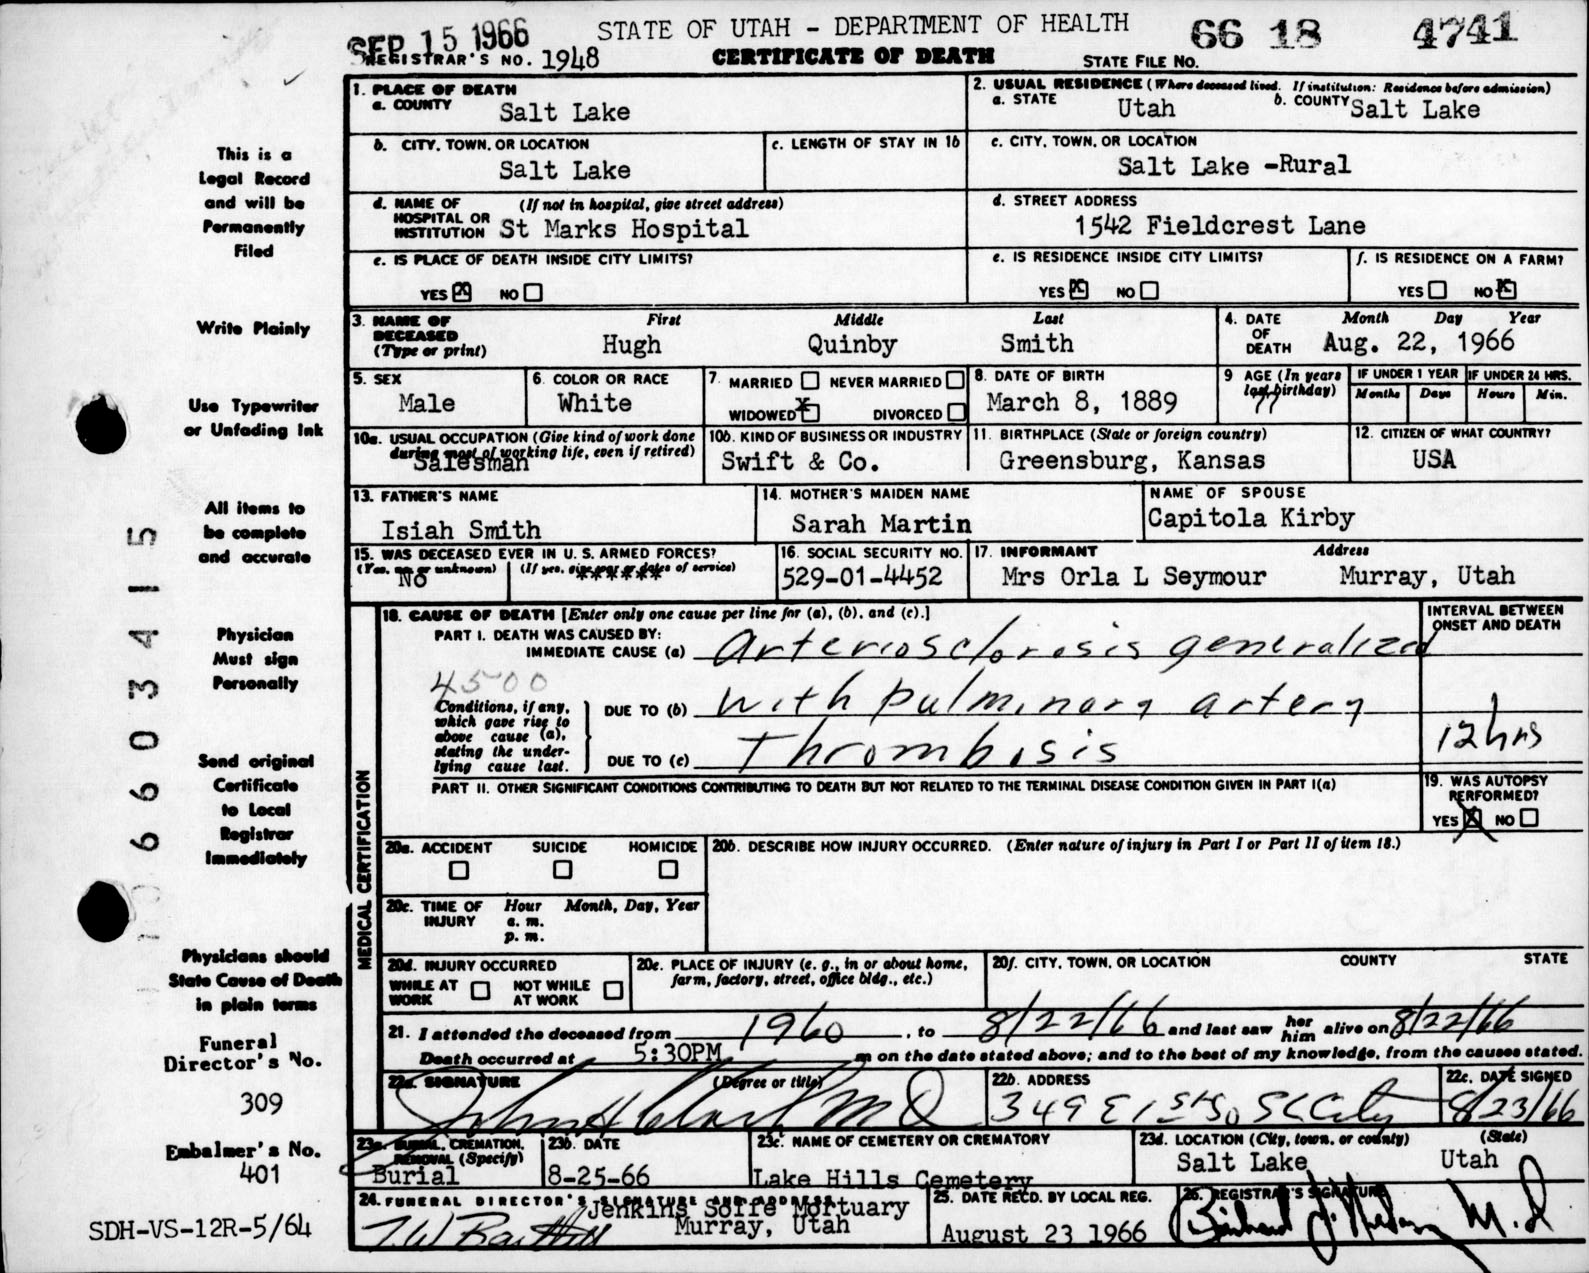 SEP 15 1966
STATE OF UTAH - DEPARTMENT OF HEALTH
66 18 4741
REGISTRAR'S NO. 1948
CERTIFICATE OF DEATH
STATE FILE No.
1. PLACE OF DEATH
a. COUNTY Salt Lake
2. USUAL RESIDENCE (Where deceased lived. If institution: Residence before admission)
a. STATE Utah b. COUNTY Salt Lake
b. CITY, TOWN, OR LOCATION Salt Lake
c. LENGTH OF STAY IN 1b
c. CITY, TOWN, OR LOCATION
Salt Lake -Rural
d. NAME OF HOSPITAL OR INSTITUTION (If not in hospital, give street address)
St Marks Hospital
d. STREET ADDRESS
1542 Fieldcrest Lane
e. IS PLACE OF DEATH INSIDE CITY LIMITS?
YES X NO
e. IS RESIDENCE INSIDE CITY LIMITS?
YES X NO
f. IS RESIDENCE ON A FARM?
YES NO X
3. NAME OF DECEASED (Type or print)
First Middle Last
Hugh Quinby Smith
4. DATE OF DEATH
Month Day Year
Aug. 22, 1966
5. SEX
Male
6. COLOR OR RACE
White
7. MARRIED NEVER MARRIED
WIDOWED X DIVORCED
8. DATE OF BIRTH
March 8, 1889
9 AGE (In years last birthday)
77
IF UNDER 1 YEAR
Months Days
IF UNDER 24 HRS.
Hours Min.
10a. USUAL OCCUPATION (Give kind of work done during most of working life, even if retired)
Salesman
10b. KIND OF BUSINESS OR INDUSTRY
Swift & Co.
11. BIRTHPLACE (State or foreign country)
Greensburg, Kansas
12. CITIZEN OF WHAT COUNTRY?
USA
13. FATHER'S NAME
Isiah Smith
14. MOTHER'S MAIDEN NAME
Sarah Martin
NAME OF SPOUSE
Capitola Kirby
15. WAS DECEASED EVER IN U. S. ARMED FORCES?
(Yes, no, or unknown) (If yes, give war or dates of service)
No ******
16. SOCIAL SECURITY NO.
529-01-4452
17. INFORMANT Address
Mrs Orla L Seymour Murray, Utah
MEDICAL CERTIFICATION
18. CAUSE OF DEATH [Enter only one cause per line for (a), (b), and (c).]
INTERVAL BETWEEN ONSET AND DEATH
PART I. DEATH WAS CAUSED BY:
IMMEDIATE CAUSE (a) Arteriosclorosis generalized
4500
Conditions, if any, which gave rise to above cause (a), stating the underlying cause last.
DUE TO (b) with pulminary artery
DUE TO (c) Thrombosis
12 hrs
PART II. OTHER SIGNIFICANT CONDITIONS CONTRIBUTING TO DEATH BUT NOT RELATED TO THE TERMINAL DISEASE CONDITION GIVEN IN PART I(a)
19. WAS AUTOPSY PERFORMED?
YES X NO
20a. ACCIDENT SUICIDE HOMICIDE
20b. DESCRIBE HOW INJURY OCCURRED. (Enter nature of injury in Part I or Part II of item 18.)
20c. TIME OF INJURY
Hour Month, Day, Year
a. m.
p. m.
20d. INJURY OCCURRED
WHILE AT WORK NOT WHILE AT WORK
20e. PLACE OF INJURY (e. g., in or about home, farm, factory, street, office bldg., etc.)
20f. CITY, TOWN, OR LOCATION COUNTY STATE
21. I attended the deceased from 1960, to 8/22/66 and last saw her him alive on 8/22/66
Death occurred at 5:30PM m on the date stated above; and to the best of my knowledge, from the causes stated.
22a. SIGNATURE (Degree or title)
John H Clark MD
22b. ADDRESS
349 E 1st So SL City
22c. DATE SIGNED
8/23/66
23a. BURIAL, CREMATION, REMOVAL (Specify)
Burial
23b. DATE
8-25-66
23c. NAME OF CEMETERY OR CREMATORY
Lake Hills Cemetery
23d. LOCATION (City, town, or county) (State)
Salt Lake Utah
24. FUNERAL DIRECTOR'S SIGNATURE AND ADDRESS
Jenkins Soffe Mortuary
Murray, Utah
25. DATE RECD. BY LOCAL REG.
August 23 1966
26. REGISTRAR'S SIGNATURE
M.D
This is a
Legal Record
and will be
Permanently
Filed
Write Plainly
Use Typewriter
or Unfading Ink
All items to
be complete
and accurate
Physician
Must sign
Personally
Send original
Certificate
to Local
Registrar
Immediately
Physicians should
State Cause of Death
in plain terms
Funeral
Director's No.
309
Embalmer's No.
401
SDH-VS-12R-5/64
6603415